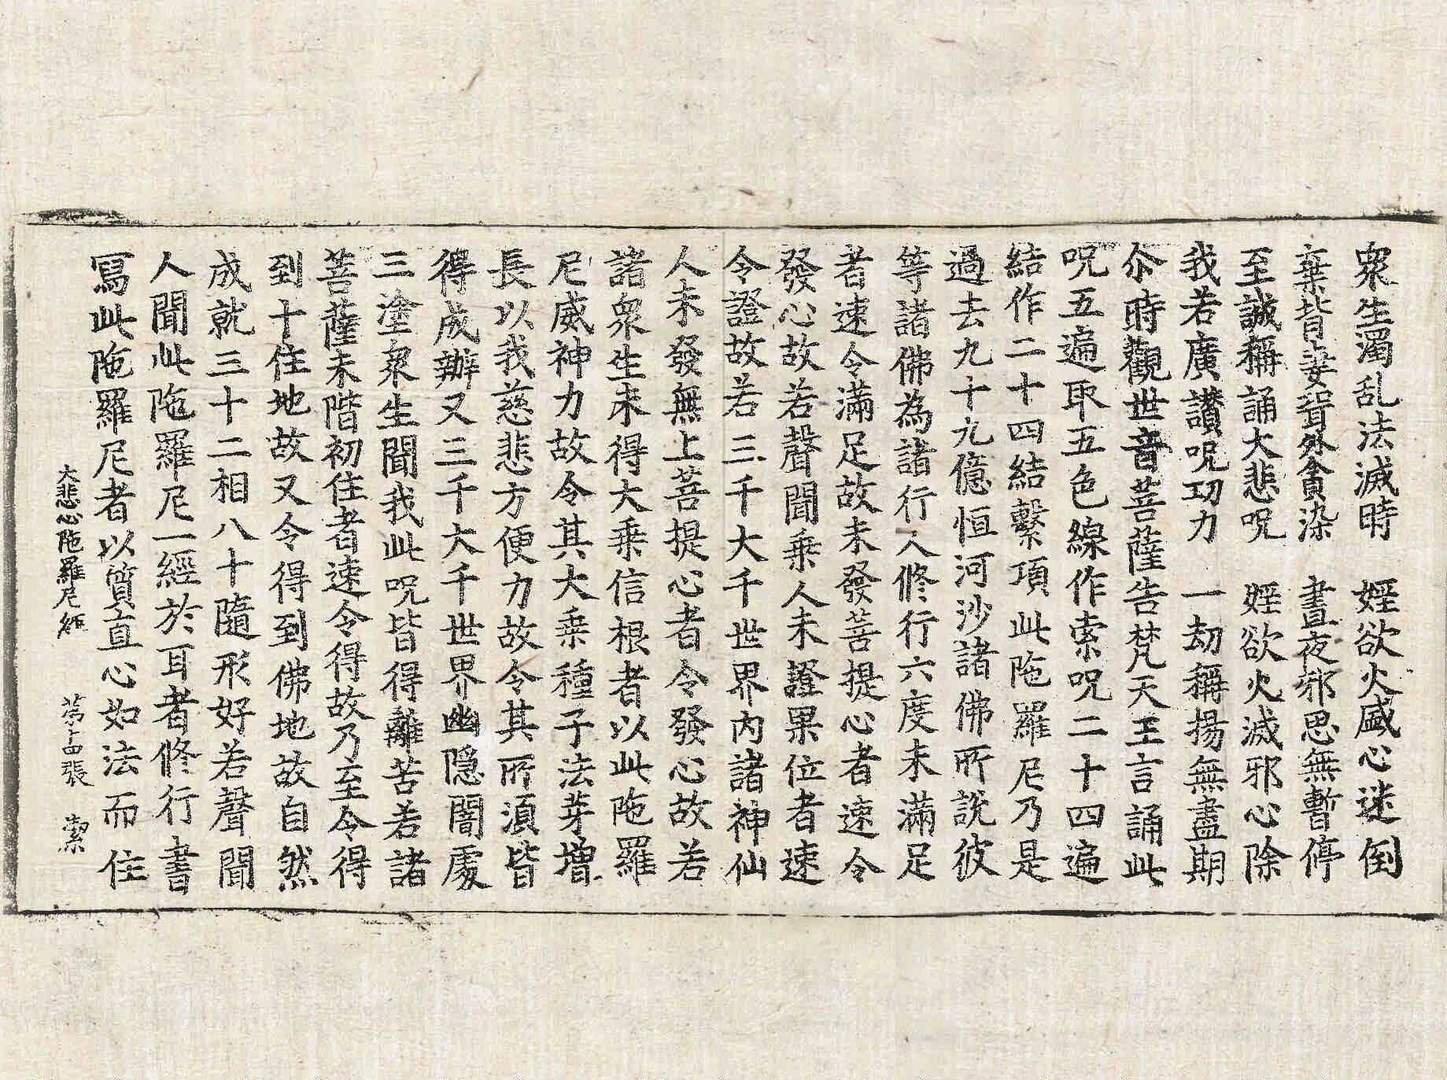 衆生濁乱法滅時　婬欲火盛心迷倒
棄背妻聟外貪染　晝夜邪思無暫停
至誠稱誦大悲呪　婬欲火滅邪心除
我若廣讃呪㓛力　一劫稱揚無盡期
尒時觀世音菩薩告梵天王言誦此
呪五遍取五色線作索呪二十四遍
結作二十四結繫項此陁羅尼乃是
過去九十九億恒河沙諸佛所說彼
等諸佛為諸行人修行六度未滿足
者速令滿足故未發菩提心者速令
發心故若聲聞乗人未證果位者速
令證故若三千大千世界内諸神仙
人未發無上菩提心者令發心故若
諸衆生未得大乗信根者以此陁羅
尼威神力故令其大乗種子法芽增
長以我慈悲方便力故令其所湏皆
得成辦又三千大千世界幽隱闇處
三塗衆生聞我此呪皆得離苦若諸
菩薩未階初住者速令得故乃至令得
到十住地故又令得到佛地故自然
成就三十二相八十隨形好若聲聞
人聞此陁羅尼一經於耳者修行書
寫此陁羅尼者以質直心如法而住
大悲心陁羅尼經　張　潔